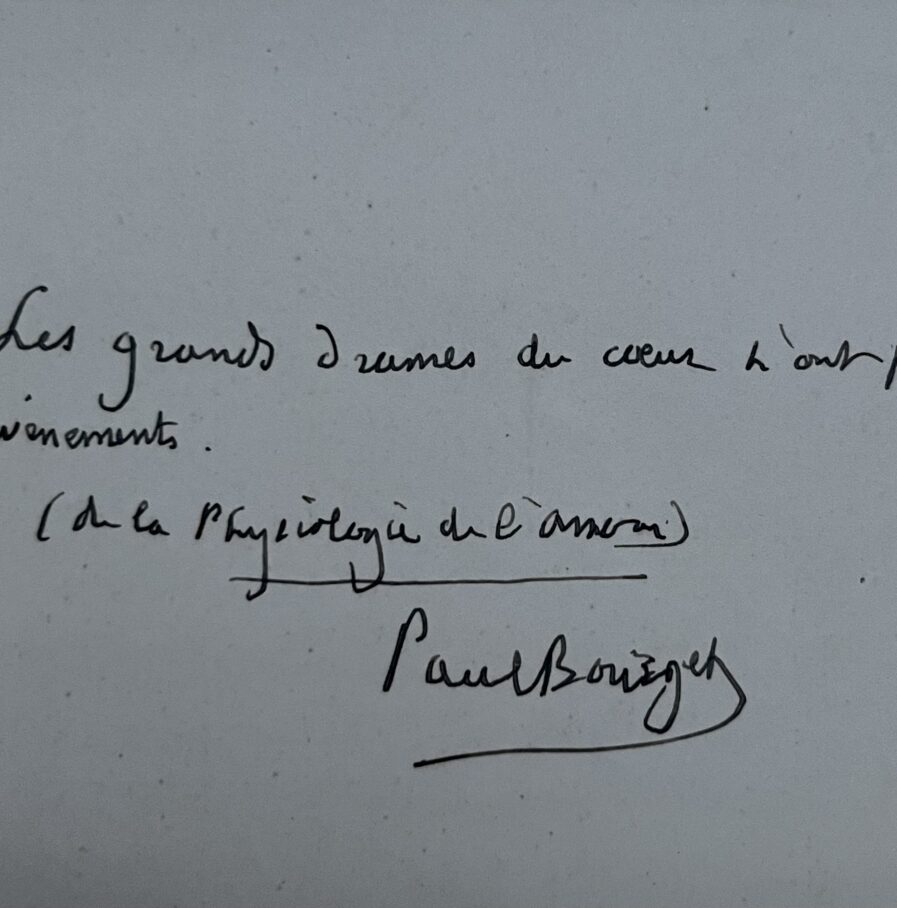 Les grands drames du coeur n'ont p
évènements.
(de la Physiologie de l'amour)
Paul Bourget